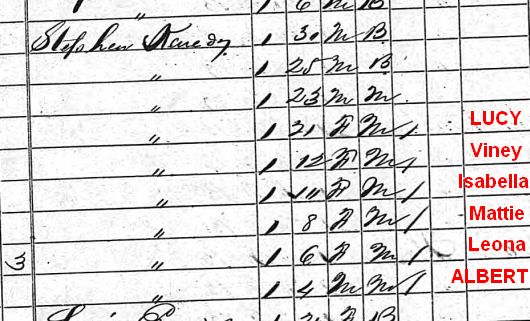 " 1 6 M B
Stephen 1 30 M B
" 1 25 M B
" 1 23 M M
" 1 31 F M / LUCY
" 1 12 F M / Viney
" 1 10 F M / Isabella
" 1 8 F M / Mattie
" 1 6 F M / Leona
" 1 4 M M / ALBERT
1 F B